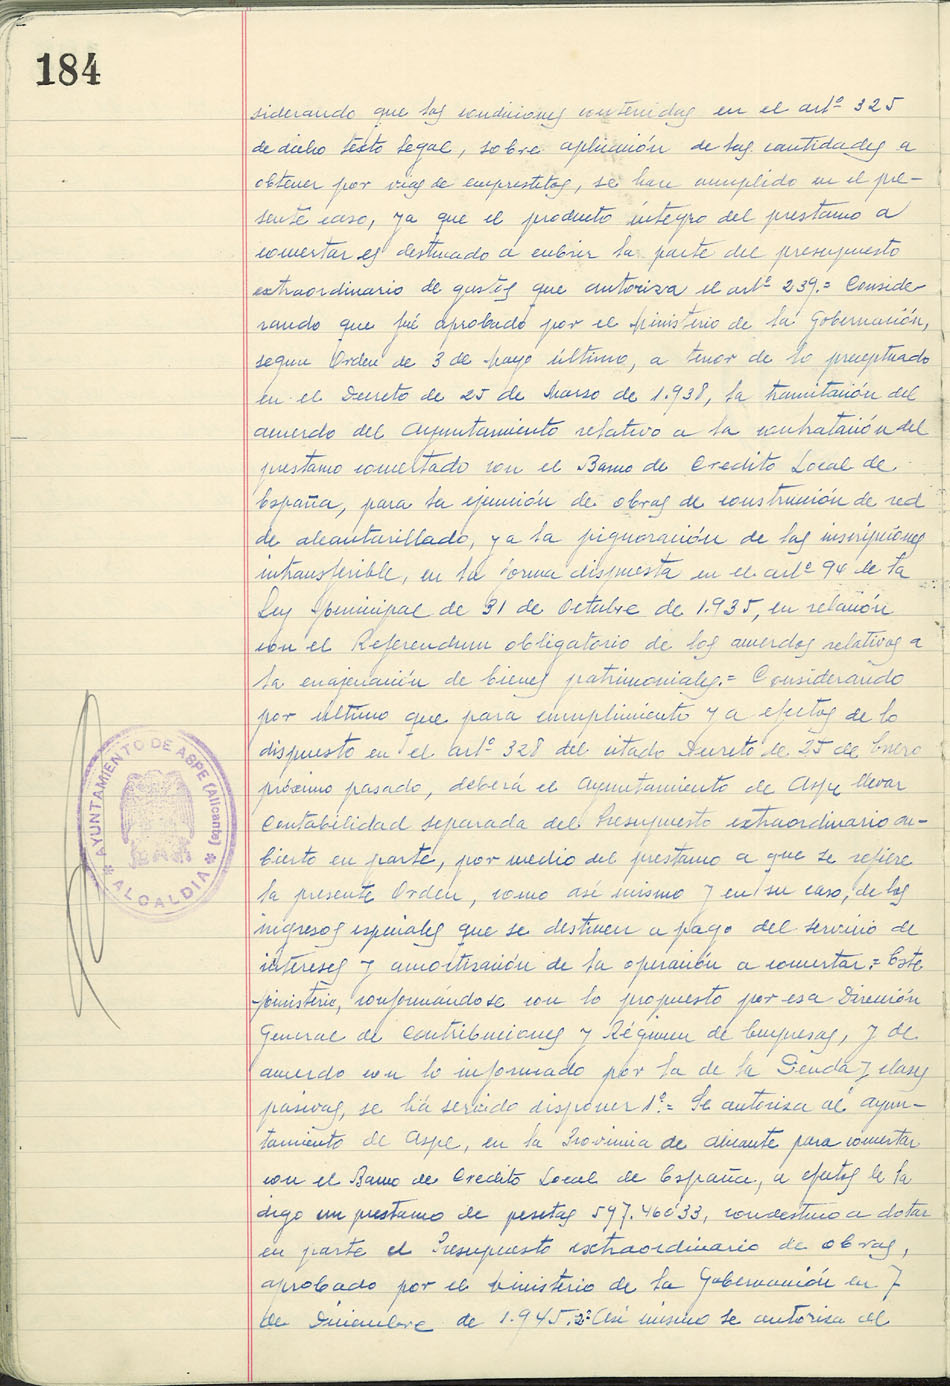 184
siderando que las condiciones contenidas en el artº 325
de dicho texto legal, sobre aplicación de las cantidades a
obtener por vias de emprestitos, se han cumplido en el pre-
sente caso, ya que el producto integro del prestamo a
concertar es destinado a cubrir la parte del presupuesto
extraordinario de gastos que autoriza el artº 239.= Conside-
rando que fué aprobado por el Ministerio de la Gobernación,
segun Orden de 3 de Mayo último, a tenor de lo preceptuado
en el Decreto de 25 de Marzo de 1.938, la tramitación del
acuerdo del Ayuntamiento relativo a la contratación del
prestamo concertado con el Banco de Credito Local de
España, para la ejecución de obras de construcción de red
de alcantarillado, y a la pignoración de las inscripciones
intransferible, en la forma dispuesta en el artº 94 de la
Ley Municipal de 31 de Octubre de 1.935, en relación
con el Referendum obligatorio de los acuerdos relativos a
la enajenación de bienes patrimoniales.= Considerando
por ultimo que para cumplimiento y a efectos de lo
dispuesto en el artº 328 del citado Decreto de 25 de Enero
próximo pasado, deberá el Ayuntamiento de Aspe llevar
Contabilidad separada del Presupuesto extraordinario cu-
bierto en parte, por medio del prestamo a que se refiere
la presente Orden, como asi mismo y en su caso, de los
ingresos especiales que se destinen a pago del servicio de
intereses y amortización de la operación a concertar.= Este
Ministerio, conformándose con lo propuesto por esa Dirección
General de Contribuciones y Régimen de Empresas, y de
acuerdo con lo informado por la de la Deuda y clases
pasivas, se ha servido disponer 1º.= Se autoriza al Ayun-
tamiento de Aspe, en la Provincia de Alicante para concertar
con el Banco de Credito Local de España, a efectos de la
digo un prestamo de pesetas 597.460'33, con destino a dotar
en parte el Presupuesto extraordinario de obras,
aprobado por el Ministerio de la Gobernación en 7
de Diciembre de 1.945. 2º: Asi mismo se autoriza al
AYUNTAMIENTO DE ASPE (Alicante)
* ALCALDIA *